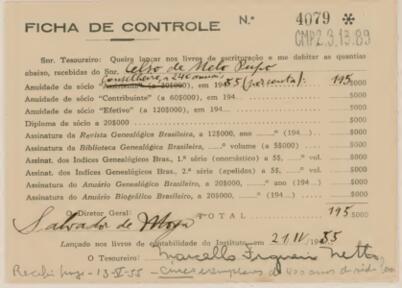 FICHA DE CONTROLE N.º 4079 *
CMP2.3.13.89
Snr. Tesoureiro: Queira lançar nos livros de escrituração e me debitar as quantias
abaixo, recebidas do Snr. Celso de Melo Pupo
Conselheiro, a 240 anuais
Anuidade de sócio "Assistente" (a 30$000), em 1955 195 $000
Anuidade de sócio "Contribuinte" (a 60$000), em 194... $000
Anuidade de sócio "Efetivo" (a 120$000), em 194... $000
Diploma de sócio a 20$000 $000
Assinatura da Revista Genealógica Brasileira, a 12$000, ano (194...) $000
Assinatura da Biblioteca Genealógica Brasileira, ..." volume (a 5$000) $000
Assinat. dos Indices Genealógicos Bras., 1.ª série (onomástico) a 5$, ..." vol. $000
Assinat. dos Indices Genealógicos Bras., 2.ª série (apelidos) a 5$, ..." vol. $000
Assinatura do Anuário Genealógico Brasileiro, a 20$000, ..." ano (194...) $000
Assinatura do Anuário Biográfico Brasileiro, a 20$000, ..." (194...) $000
O Diretor Geral: TOTAL 195 $000
Salvador de Moya
Lançado nos livros de contabilidade do Instituto, em 21/IV/1955
O Tesoureiro: Marcello